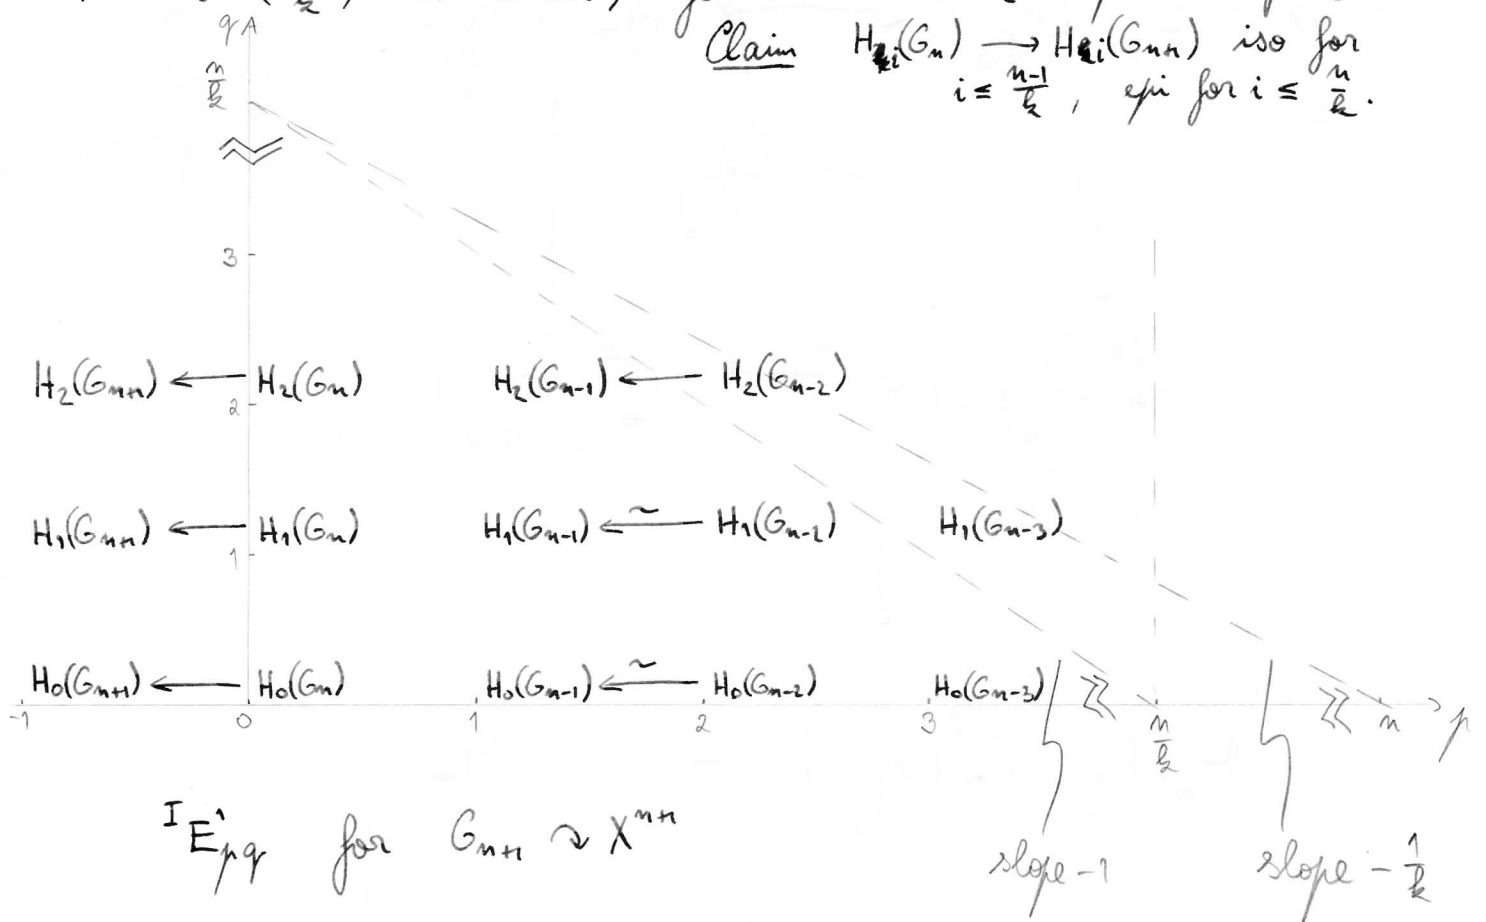 Claim H_i(G_n) → H_i(G_{n+1}) iso for
i ≤ \frac{n-1}{k}, epi for i ≤ \frac{n}{k}.
q
\frac{n}{k}
3
H_2(G_{n+1}) ← H_2(G_n) H_2(G_{n-1}) ← H_2(G_{n-2})
2
H_1(G_{n+1}) ← H_1(G_n) H_1(G_{n-1}) \overset{\sim}{←} H_1(G_{n-2}) H_1(G_{n-3})
1
H_0(G_{n+1}) ← H_0(G_n) H_0(G_{n-1}) \overset{\sim}{←} H_0(G_{n-2}) H_0(G_{n-3})
-1 0 1 2 3 \frac{n}{k} n p
^I E^1_{pq} for G_{n+1} ↷ X^{n+1}
slope -1 slope -\frac{1}{k}